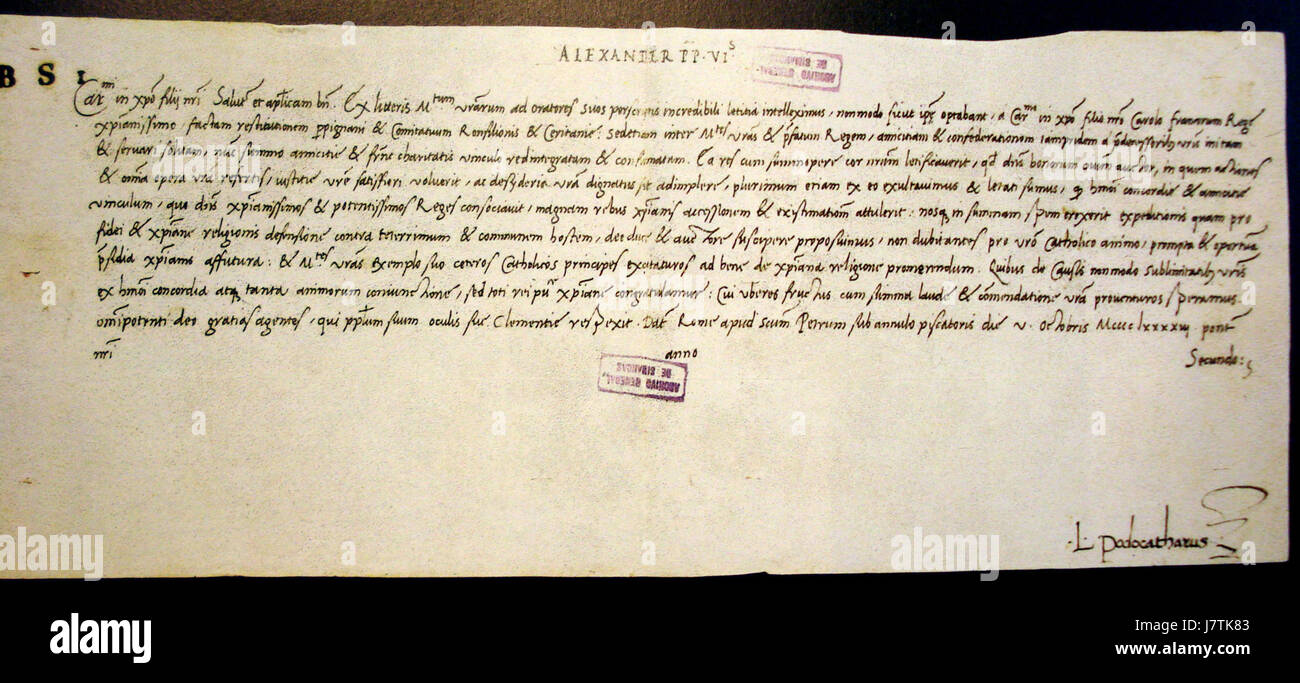 ALEXANDER PP. VIs
B S I
Carmi in xpo filij nri Salutem et aplicam bn. Ex litteris Mtum vrarum ad oratores suos perscriptis incredibili letitia intelleximus, non modo sicut ips optabant, a Carmo in xpo filio nro Carolo francorum Rege
xpianissimo, factam restitutionem ppigniani & Comitatum Ronsilionis & Ceritanie: Sed etiam inter Mtes vras & pfatum Regem, amicitiam & confederationem iampridem a pdecessoribus vris initam
& servari solitam, nunc summo amicitie & frne charitatis vinculo redintegratam & confirmatam. Ea res cum summopere cor nrum letificaverit, qd dns bonorum omnium auctor, in quem actiones
& omnia opera vra refertis, iustitie vre satisfieri voluerit, ac desyderia vram dignatus sit adimplere, plurimum etiam ex eo exultavimus & letati sumus, q hmoi concordie & amicitie
vinculum, quo duos xpianissimos & potentissimos Reges consociavit, magnam rebus xpianis accessionem & existimationem attulerit: nosq in summam spem erexerit expeditionis quam pro
fidei & xpiane religionis defensione contra teterrimum & communem hostem, deo duce & auctore suscipere proposuimus, non dubitantes pro vro Catholico animo, prompta & oportuna
psidia xpianis affutura: & Mtes vras exemplo suo ceteros Catholicos principes excitaturos ad bene de xpiana religione promerendum. Quibus de Causis non modo Sublimitatibus vris
ex hmoi concordia atq tanta animorum coniunctione, sed toti rei pu xpiane congratulamur: Cui uberes fructus cum summa laude & comendatione vra proventuros speramus
omipotenti deo gratias agentes, qui pplum suum oculis sue Clementie respexit. Dat. Rome apud scum Petrum sub annulo piscatoris die v. Octobris Mcccclxxxxiij pont
nri anno Secundo:
ARCHIVO GENERAL
DE SIMANCAS
ARCHIVO GENERAL
DE SIMANCAS
.L. Podocatharus
alamy stock photo
alamy
Image ID: J7TK83
www.alamy.com